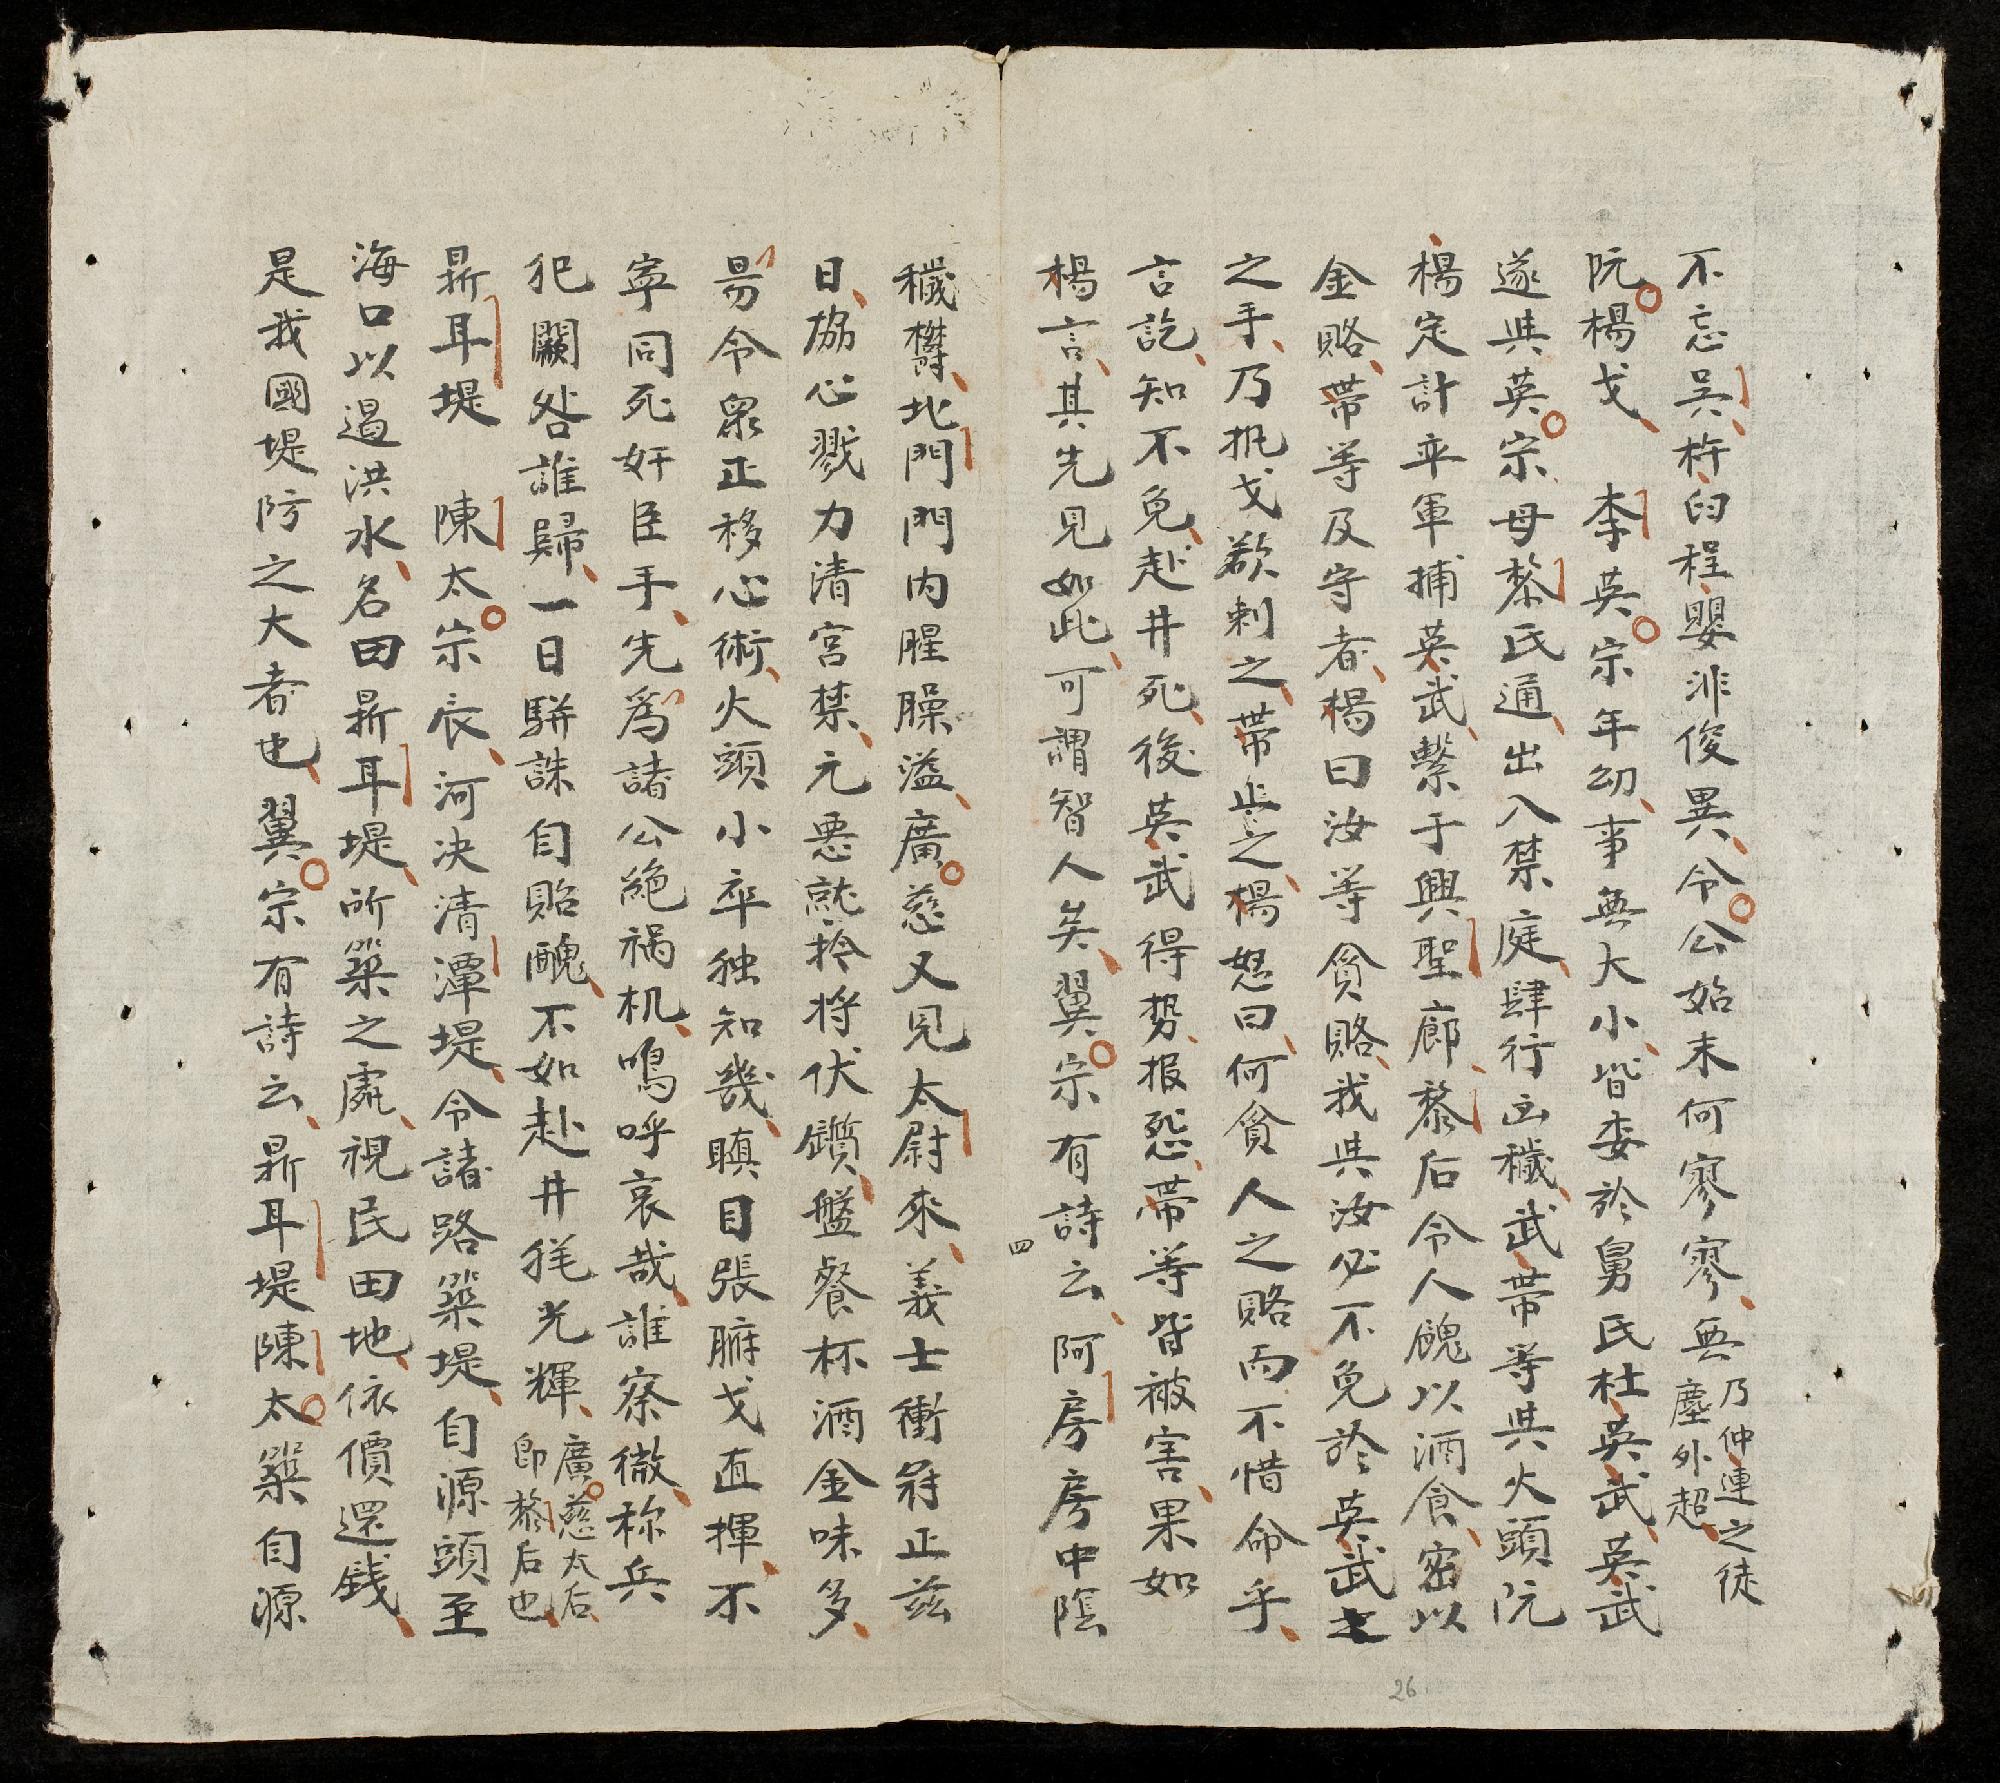 不忘吳杵臼程嬰非俊異令公始末何寥寥無乃仲連之徒塵外超
阮楊戈　李英宗年幼事無大小皆委於舅氏杜英武英武
遂與英宗母黎氏通出入禁庭肆行凶穢武帶等與火頭阮
楊定計率軍捕英武繫于興聖廊黎后令人餽以酒食密以
金賂帶等及守者楊曰汝等貪賂我與汝必不免於英武之
之手乃抓戈欲刺之帶止之楊怒曰何貪人之賂而不惜命乎
言訖知不免赴井死後英武得势报怨帶等皆被害果如
楊言其先見如此可謂智人矣翼宗有詩云阿房房中陰
四
穢欝北門門内腥臊溢廣慈又見太尉來義士衝冠正茲
日協心戮力清宮禁元惡就拎將伏鑕盤餐杯酒金味多
易令衆正移心術火頭小卒独知幾瞋目張膽戈直揮不
寧同死奸臣手先爲諸公絕祸机鳴呼哀哉誰察徹称兵
犯闕咎誰歸一日駢誅自貽醜不如赴井猶光輝廣慈太后即黎后也
鼎耳堤　陳太宗辰河決清潭堤令諸路築堤自源頭至
海口以遏洪水名曰鼎耳堤所築之處視民田地依價還錢
是我國堤防之大者也翼宗有詩云鼎耳堤陳太築自源
26